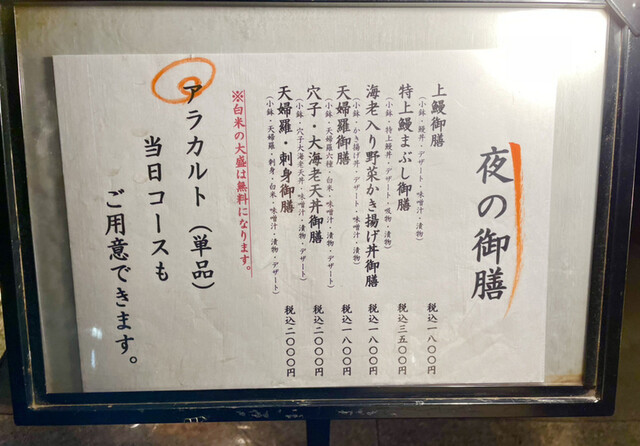 夜の御膳
上鰻御膳 税込一八〇〇円
(小鉢・鰻丼・デザート・味噌汁・漬物)
特上鰻まぶし御膳 税込三五〇〇円
(小鉢・特上鰻丼・デザート・吸物・漬物)
海老入り野菜かき揚げ丼御膳 税込一八〇〇円
(小鉢・かき揚げ丼・デザート・味噌汁・漬物)
天婦羅御膳 税込一八〇〇円
(小鉢・天婦羅六種・白米・味噌汁・漬物・デザート)
穴子・大海老天丼御膳 税込二〇〇〇円
(小鉢・穴子大海老天丼・味噌汁・漬物・デザート)
天婦羅・刺身御膳 税込二〇〇〇円
(小鉢・天婦羅・刺身・白米・味噌汁・漬物・デザート)
※白米の大盛は無料になります。
アラカルト(単品)
当日コースも
ご用意できます。